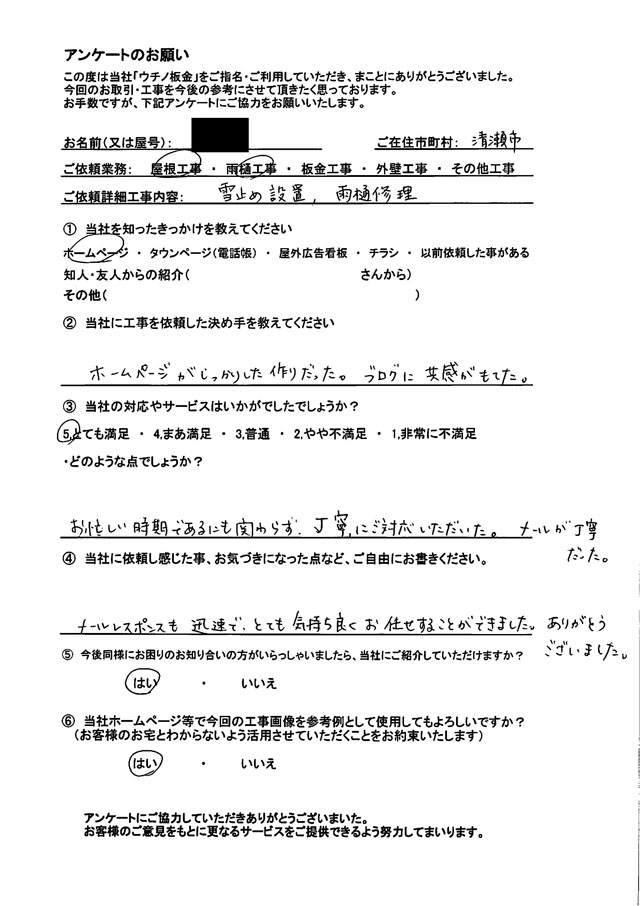 アンケートのお願い
この度は当社「ウチノ板金」をご指名・ご利用していただき、まことにありがとうございました。
今回のお取引・工事を今後の参考にさせて頂きたく思っております。
お手数ですが、下記アンケートにご協力をお願いいたします。
お名前(又は屋号): ご在住市町村: 清瀬市
ご依頼業務: 屋根工事 ・ 雨樋工事 ・ 板金工事 ・ 外壁工事 ・ その他工事
ご依頼詳細工事内容: 雪止め設置, 雨樋修理
① 当社を知ったきっかけを教えてください
ホームページ ・ タウンページ(電話帳) ・ 屋外広告看板 ・ チラシ ・ 以前依頼した事がある
知人・友人からの紹介( さんから)
その他( )
② 当社に工事を依頼した決め手を教えてください
ホームページがしっかりした作りだった。ブログに共感がもてた。
③ 当社の対応やサービスはいかがでしたでしょうか?
5,とても満足 ・ 4,まあ満足 ・ 3,普通 ・ 2,やや不満足 ・ 1,非常に不満足
・どのような点でしょうか?
お忙しい時期であるにも関わらず、丁寧にご対応いただいた。 メールが丁寧
だった。
④ 当社に依頼し感じた事、お気づきになった点など、ご自由にお書きください。
メールレスポンスも迅速で、とても気持ち良くお任せすることができました。ありがとう
ございました。
⑤ 今後同様にお困りのお知り合いの方がいらっしゃいましたら、当社にご紹介していただけますか?
はい ・ いいえ
⑥ 当社ホームページ等で今回の工事画像を参考例として使用してもよろしいですか?
(お客様のお宅とわからないよう活用させていただくことをお約束いたします)
はい ・ いいえ
アンケートにご協力していただきありがとうございまいた。
お客様のご意見をもとに更なるサービスをご提供できるよう努力してまいります。